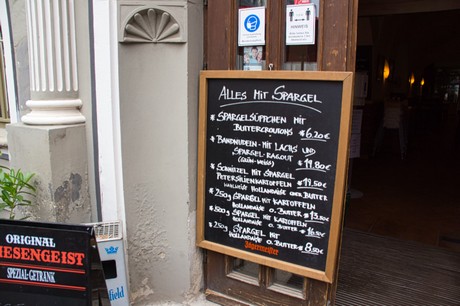 ALLES MIT SPARGEL
* SPARGELSÜPPCHEN MIT
BUTTERCROUTONS
6.20
* BANDNUDELN-MIT LACHS UND
SPARGEL-RAGOUT
(GRÜN-WEISS)
* SCHNITZEL MIT SPARGEL
PETERSILIENKARTOFFELN
HOLLANDAISE ODER BUTTER
* 250g SPARGEL MIT KARTOFFELN
HOLLANDAISE O. BUTTER
* 500g SPARGEL MIT KARTOFFELN
HOLLANDAISE O. BUTTER
* 250g SPARGEL
HOLLANDAISE O. BUTTER
8.50
Jägermeister
ORIGINAL
RIESENGEIST
SPEZIAL-GETRÄNK